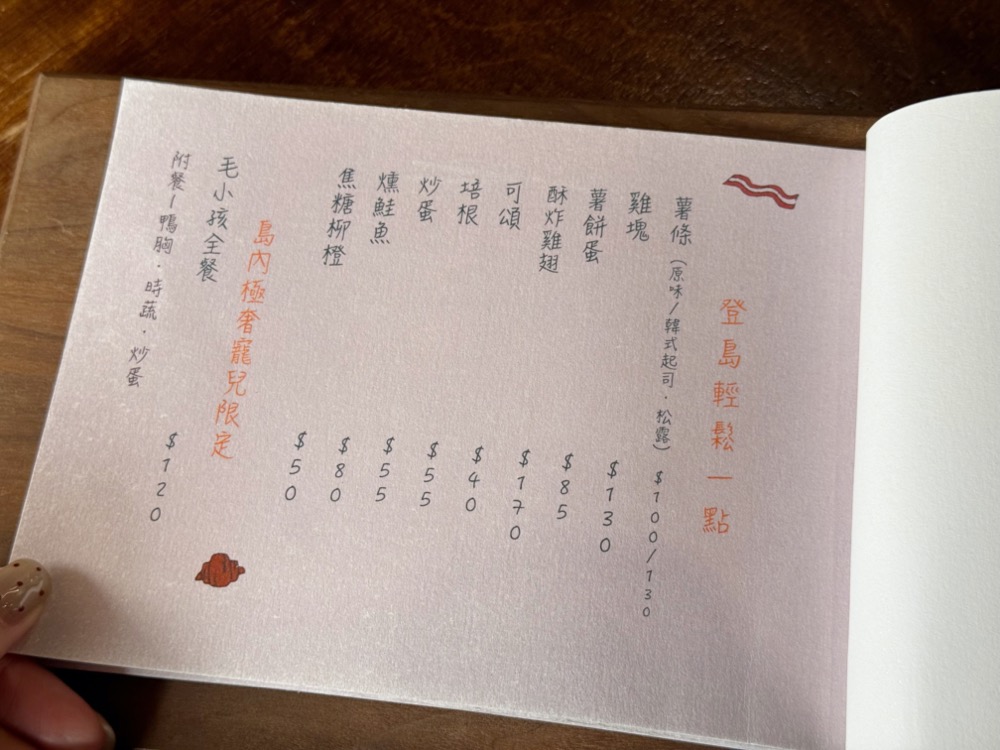 登島輕鬆一點
薯條(原味/韓式起司.松露) $100/130
雞塊 $130
薯餅蛋 $85
酥炸雞翅 $170
可頌 $40
培根 $55
炒蛋 $55
燻鮭魚 $80
焦糖柳橙 $50
島內極奢寵兒限定
毛小孩全餐 $120
附餐/鴨胸.時蔬.炒蛋